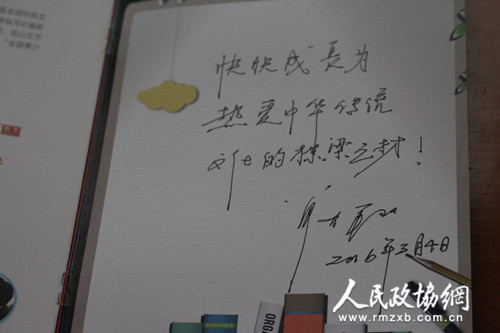 快快成長为
热爱中华传统
文化的栋梁之材！
2016年3月4日
人民政協網
www.rmzxb.com.cn